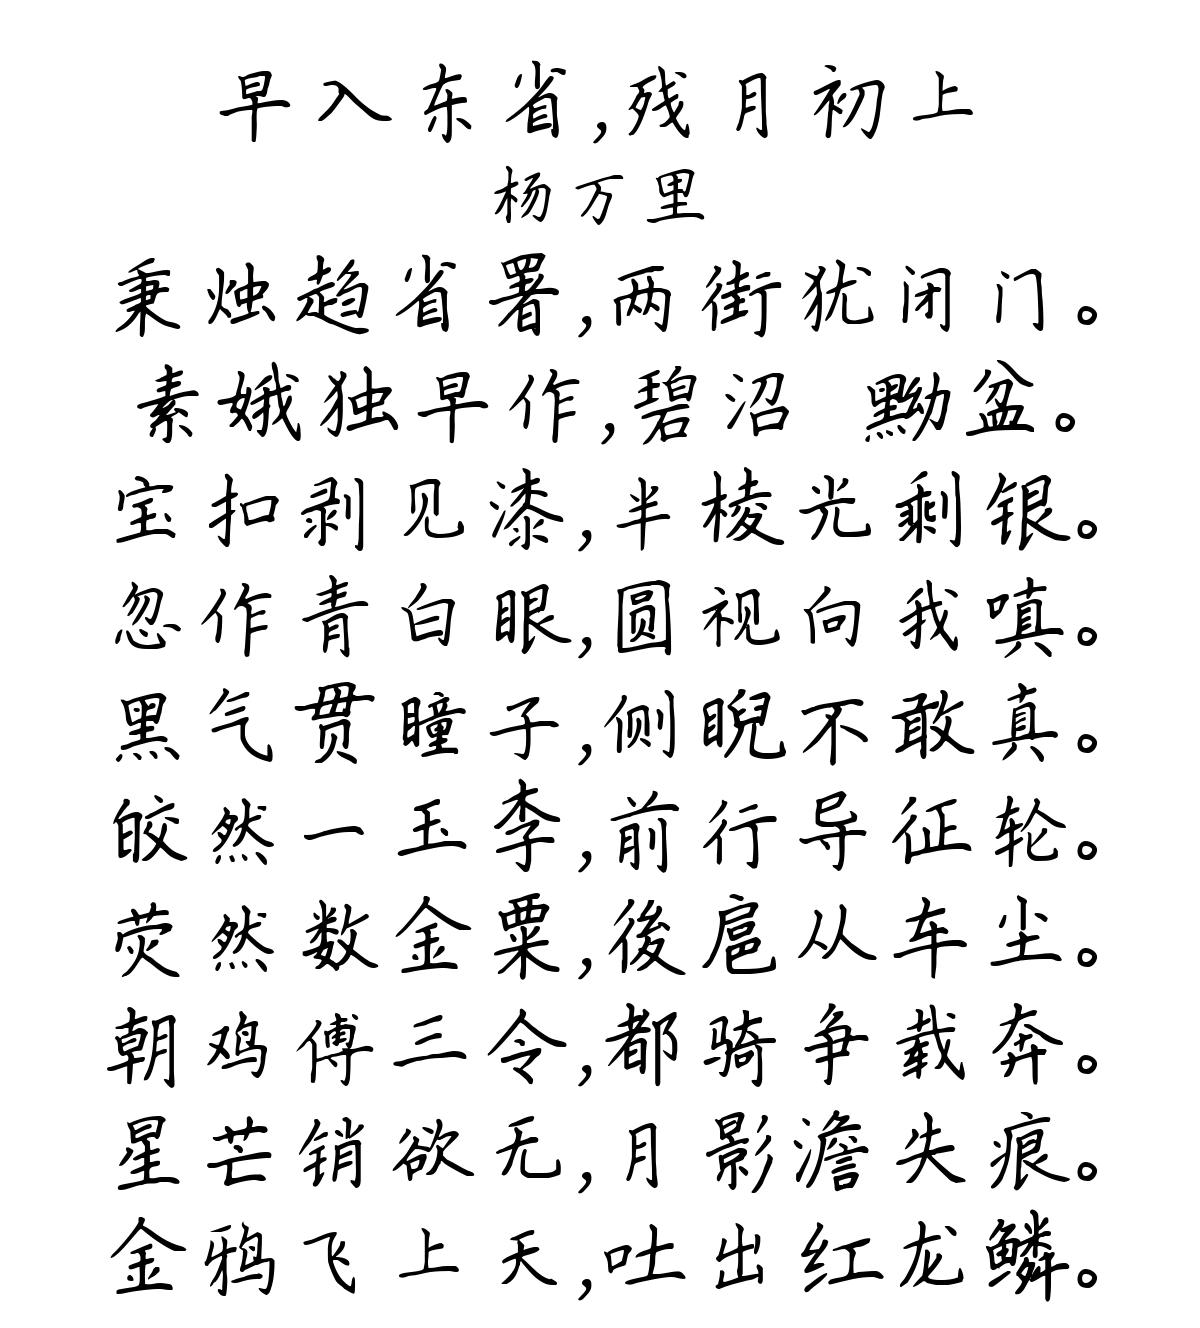 早入东省,残月初上
杨万里
秉烛趋省署,两街犹闭门。
素娥独早作,碧沼 黝盆。
宝扣剥见漆,半棱光剩银。
忽作青白眼,圆视向我嗔。
黑气贯瞳子,侧睨不敢真。
皎然一玉李,前行导征轮。
荧然数金粟,後扈从车尘。
朝鸡傅三令,都骑争载奔。
星芒销欲无,月影澹失痕。
金鸦飞上天,吐出红龙鳞。